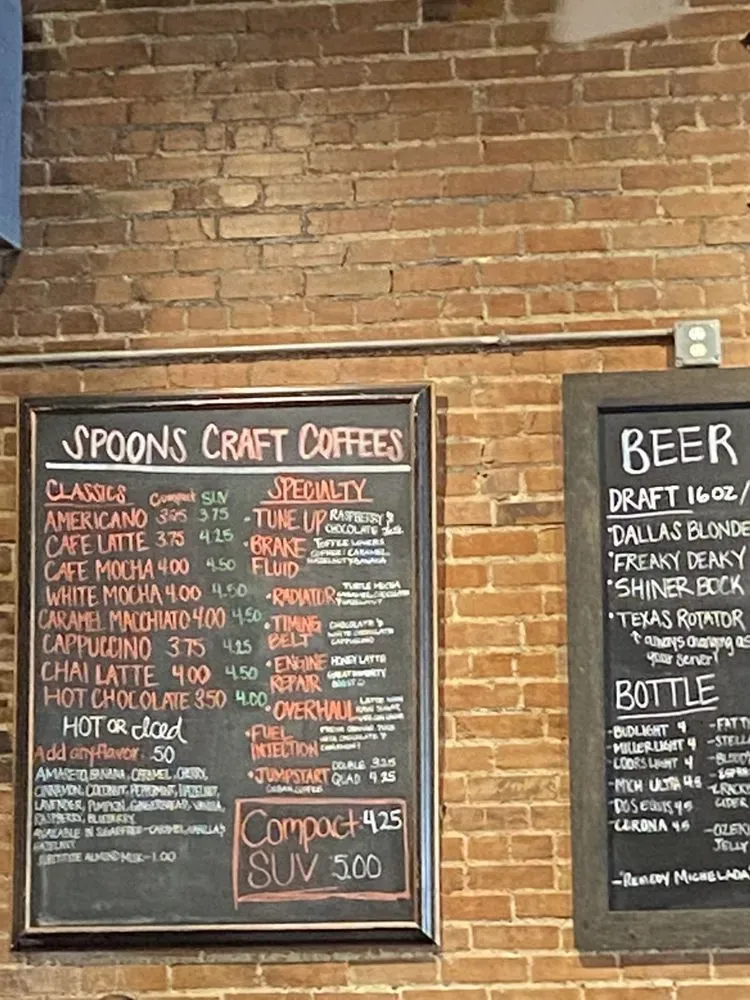 SPOONS CRAFT COFFEES
CLASSICS Compact SUV
AMERICANO 3.75
CAFE LATTE 3.75 4.25
CAFE MOCHA 4.00 4.50
WHITE MOCHA 4.00 4.50
CARAMEL MACCHIATO 4.00 4.50
CAPPUCCINO 3.75 4.25
CHAI LATTE 4.00 4.50
HOT CHOCOLATE 3.50 4.00
HOT OR iced
Add any flavor .50
AMARETO, BANANA, CARAMEL, CHERRY,
CINNAMON, COCONUT, PEPPERMINT, HAZELNUT,
LAVENDER, PUMPKIN, GINGERBREAD, VANILLA,
RASPBERRY, BLUEBERRY
AVAILABLE IN SUGARFREE-CARAMEL, VANILLA &
HAZELNUT
SUBSTITUTE ALMOND MILK-1.00
SPECIALTY
• TUNE UP RASPBERRY &
CHOCOLATE
• BRAKE TOFFEE LOVERS
FLUID
• RADIATOR TURTLE MOCHA
• TIMING CHOCOLATE &
BELT WHITE CHOCOLATE
CAPPUCCINO
• ENGINE HONEY LATTE
REPAIR
• OVERHAUL
• FUEL
INJECTION
• JUMPSTART DOUBLE 3.25
QUAD 4.25
CUBAN COFFEE
Compact 4.25
SUV 5.00
BEER
DRAFT 16OZ/
•DALLAS BLONDE
•FREAKY DEAKY
•SHINER BOCK
•TEXAS ROTATOR
↑ always changing as
your server!
BOTTLE
-BUDLIGHT 4
-MILLER LIGHT 4
-COORS LIGHT 4
-MICH ULTRA 4.5
-DOS EQUIS 4.5
-CORONA 4.5
-FAT T
-STELL
-BLOOD
CIDER
JELLY
-"REMEDY MICHELADA